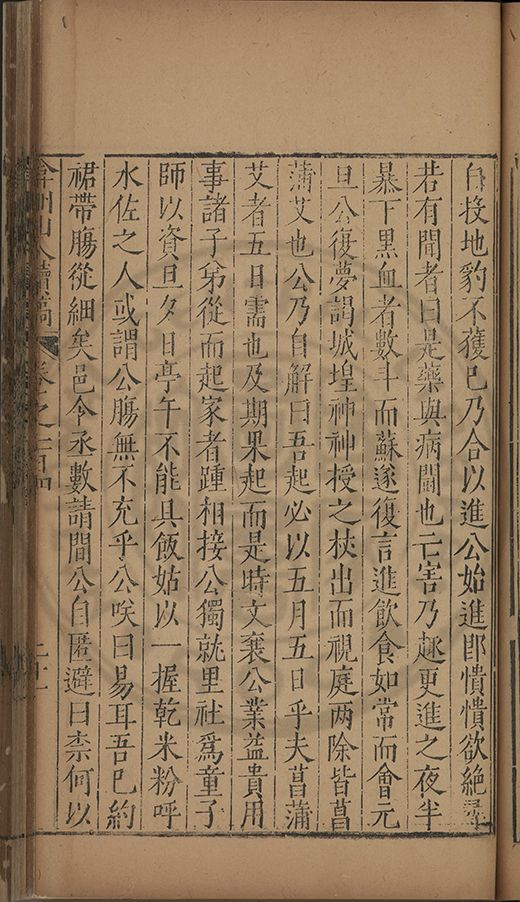 自投地豹不獲已乃合以進公始進即憒憒欲絕尋
若有聞者曰是藥與病鬬也亡害乃趣更進之夜半
暴下黑血者數斗而蘇遂復言進飲食如常而會元
旦公復夢謁城堭神神授之杖出而視庭两除皆菖
蒲艾也公乃自解曰吾起必以五月五日乎夫菖蒲
艾者五日需也及期果起而是時文裵公業益貴用
事諸子弟從而起家者踵相接公獨就里社爲童子
師以資旦夕日亭午不能具飯姑以一握乾米粉呼
水佐之人或謂公膓無不充乎公咲曰易耳吾已約
裙帶膓從細矣邑令丞數請間公自匿避曰柰何以
弇州山人續稿 卷之一百四 二十一